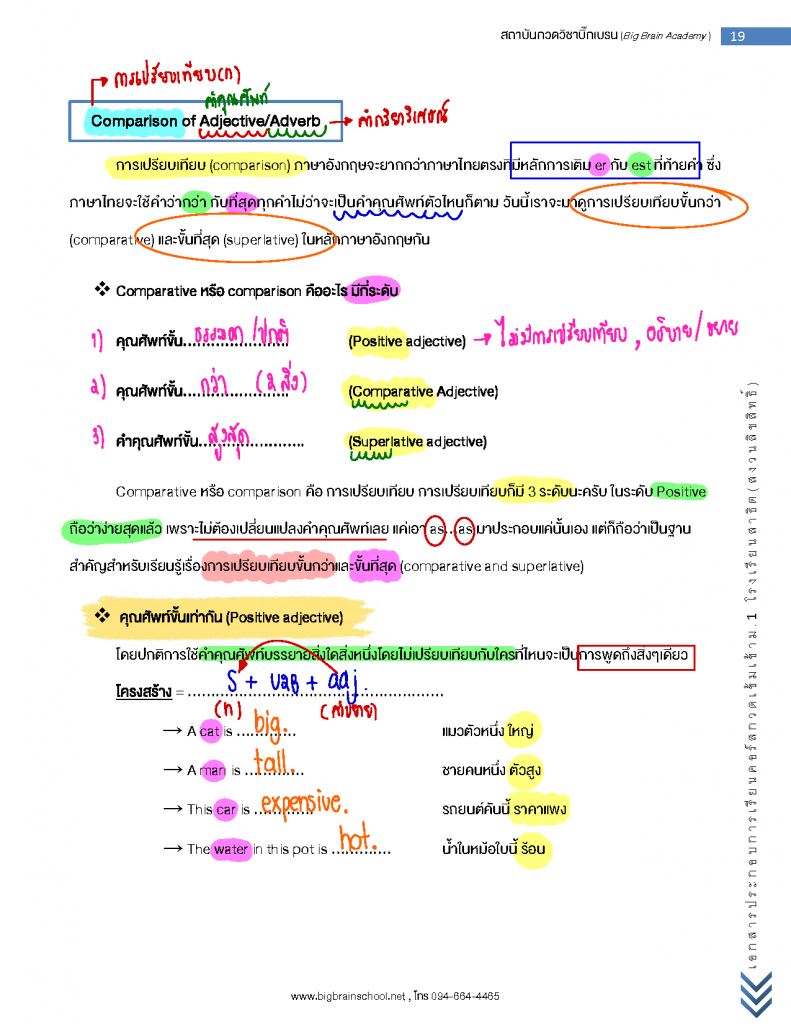 สถาบันกวดวิชาบิ๊กเบรน (Big Brain Academy ) 19
การเปรียบเทียบ(n)
คำคุณศัพท์
Comparison of Adjective/Adverb → คำกริยาวิเศษณ์
การเปรียบเทียบ (comparison) ภาษาอังกฤษจะยากกว่าภาษาไทยตรงที่มีหลักการเติม er กับ est ที่ท้ายคำ ซึ่ง
ภาษาไทยจะใช้คำว่ากว่า กับที่สุดทุกคำไม่ว่าจะเป็นคำคุณศัพท์ตัวไหนก็ตาม วันนี้เราจะมาดูการเปรียบเทียบขั้นกว่า
(comparative) และขั้นที่สุด (superlative) ในหลักภาษาอังกฤษกัน
❖ Comparative หรือ comparison คืออะไร มีกี่ระดับ
1) คุณศัพท์ขั้น ธรรมดา / ปกติ (Positive adjective) → ไม่มีการเปรียบเทียบ , อธิบาย / ขยาย
2) คุณศัพท์ขั้น กว่า (2 สิ่ง) (Comparative Adjective)
3) คำคุณศัพท์ขั้น สูงสุด (Superlative adjective)
Comparative หรือ comparison คือ การเปรียบเทียบ การเปรียบเทียบก็มี 3 ระดับนะครับ ในระดับ Positive
ถือว่าง่ายสุดแล้ว เพราะไม่ต้องเปลี่ยนแปลงคำคุณศัพท์เลย แค่เอา as…as มาประกอบแค่นั้นเอง แต่ก็ถือว่าเป็นฐาน
สำคัญสำหรับเรียนรู้เรื่องการเปรียบเทียบขั้นกว่าและขั้นที่สุด (comparative and superlative)
❖ คุณศัพท์ขั้นเท่ากัน (Positive adjective)
โดยปกติการใช้คำคุณศัพท์บรรยายสิ่งใดสิ่งหนึ่งโดยไม่เปรียบเทียบกับใครที่ไหนจะเป็นการพูดถึงสิ่งๆเดียว
โครงสร้าง = S + VกB + adj.
(n) (คำขยาย)
→ A cat is big. แมวตัวหนึ่ง ใหญ่
→ A man is tall. ชายคนหนึ่ง ตัวสูง
→ This car is expensive. รถยนต์คันนี้ ราคาแพง
→ The water in this pot is hot. น้ำในหม้อใบนี้ ร้อน
เอกสารประกอบการเรียนคอร์สกวดเข้มเข้าม.1 โรงเรียนสาธิต(สงวนลิขสิทธิ์)
www.bigbrainschool.net , โทร 094-664-4465